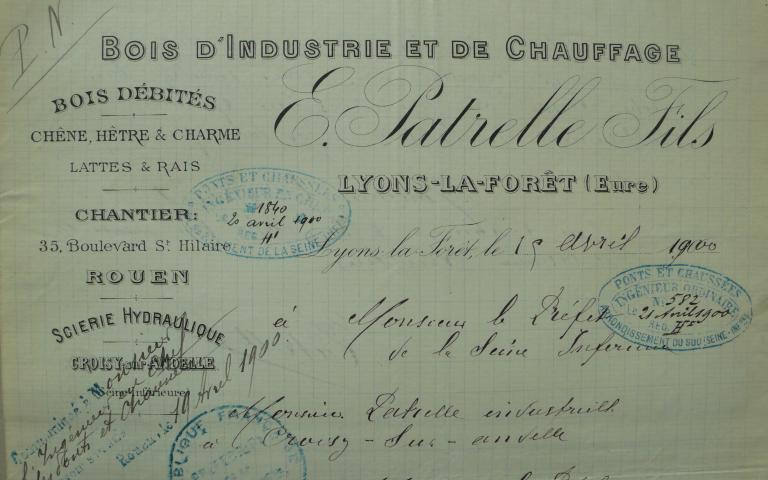 P. N.
BOIS D'INDUSTRIE ET DE CHAUFFAGE
E. Patrelle Fils
LYONS-LA-FORÊT (Eure)
BOIS DÉBITÉS
CHÊNE, HÊTRE & CHARME
LATTES & RAIS
CHANTIER:
35, Boulevard St Hilaire
ROUEN
SCIERIE HYDRAULIQUE
CROISY-sur-ANDELLE
Seine-Inférieure
PONTS ET CHAUSSÉES
INGÉNIEUR EN CHEF
1840
20 avril 1900
REG. H'
DÉPARTEMENT DE LA SEINE INFRE
Lyons-la-Forêt, le 15 avril 1900
PONTS ET CHAUSSÉES
INGÉNIEUR ORDINAIRE
No 582
Le 21 Avril 1900
REG. H
ARRONDISSEMENT DU SUD (SEINE-INFRE)
à Monsieur le Préfet
de la Seine Inférieure
Monsieur Patrelle industriel
à Croisy-Sur-andelle
Monsieur
l'Ingénieur en Chef
des Ponts et Chaussées
Rouen, le 19 Avril 1900.